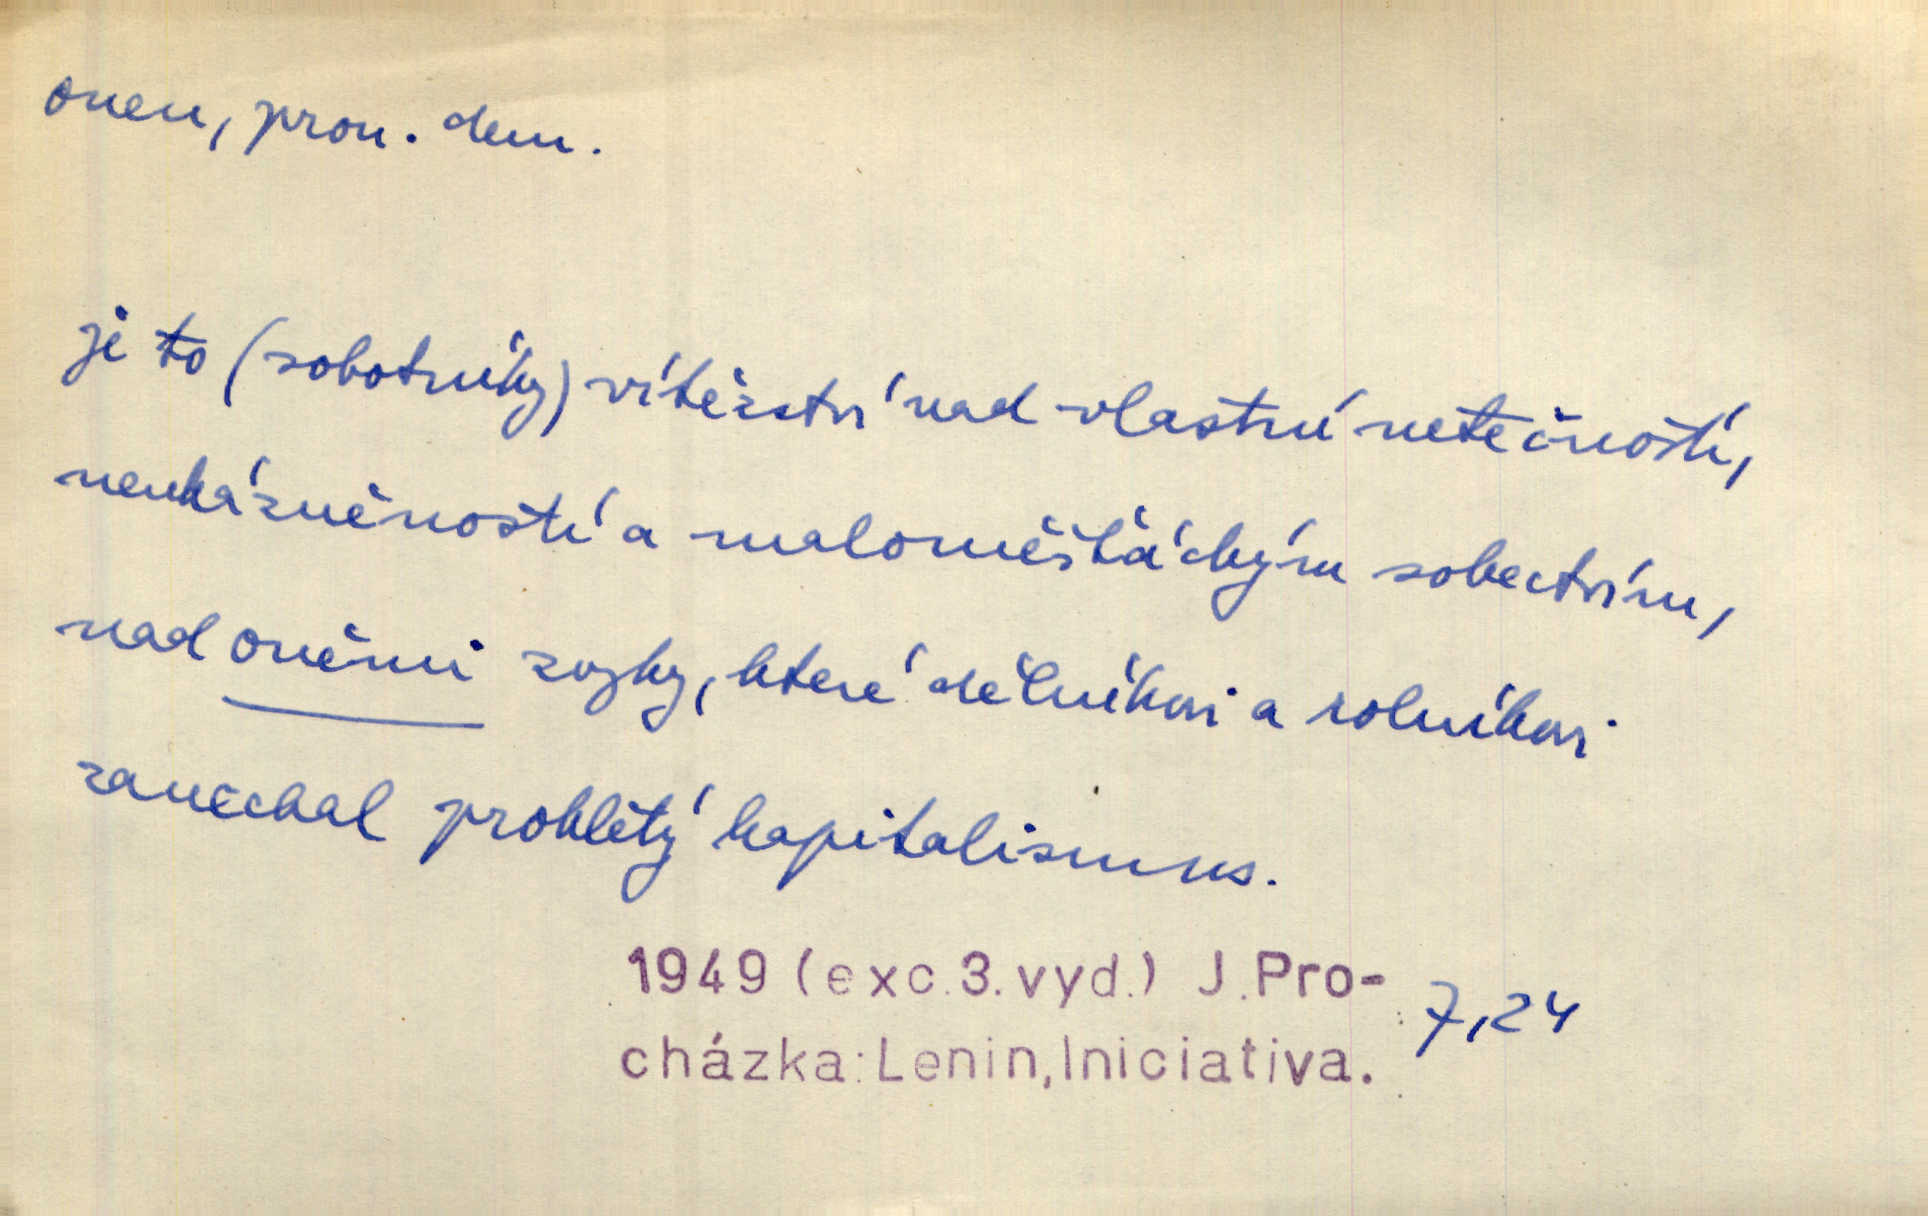 onen, pron. dem.
je to (sobotníky) vítězství nad vlastní netečností,
neukázněností a maloměšťáckým sobectvím,
nad oněmi zvyky, které dělníkovi a rolníkovi
zanechal prokletý kapitalismus.
1949 (exc. 3. vyd.) J. Pro-
cházka: Lenin, Iniciativa.
7,24